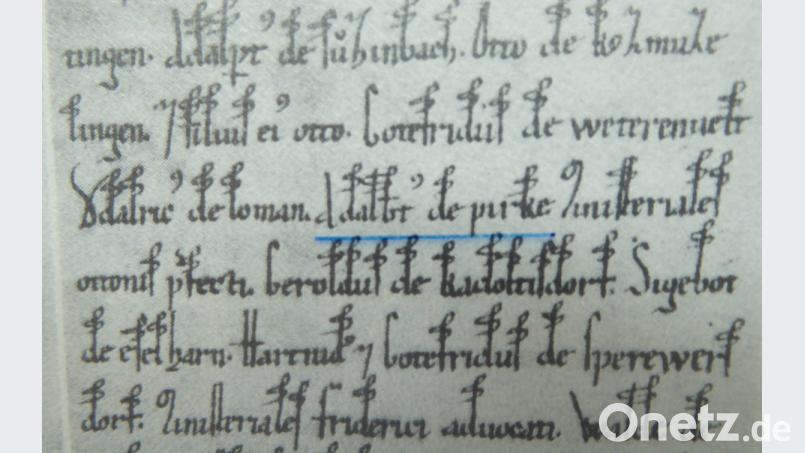 tingen. Adalpt' de fuhinbach. Otto de
lingen. 7 filius ei' otto. Gotefridus de weterenuelt
Vdalric' de loman. Adalbt' de pirke Ministeriales
ottonis pfecti. beroldus de kadoltisdorf. Sigebot
de eselharn. Hartuid' 7 Gotefridus de sperewers
dorf. Ministeriales friderici aduocati.
Onetz.de